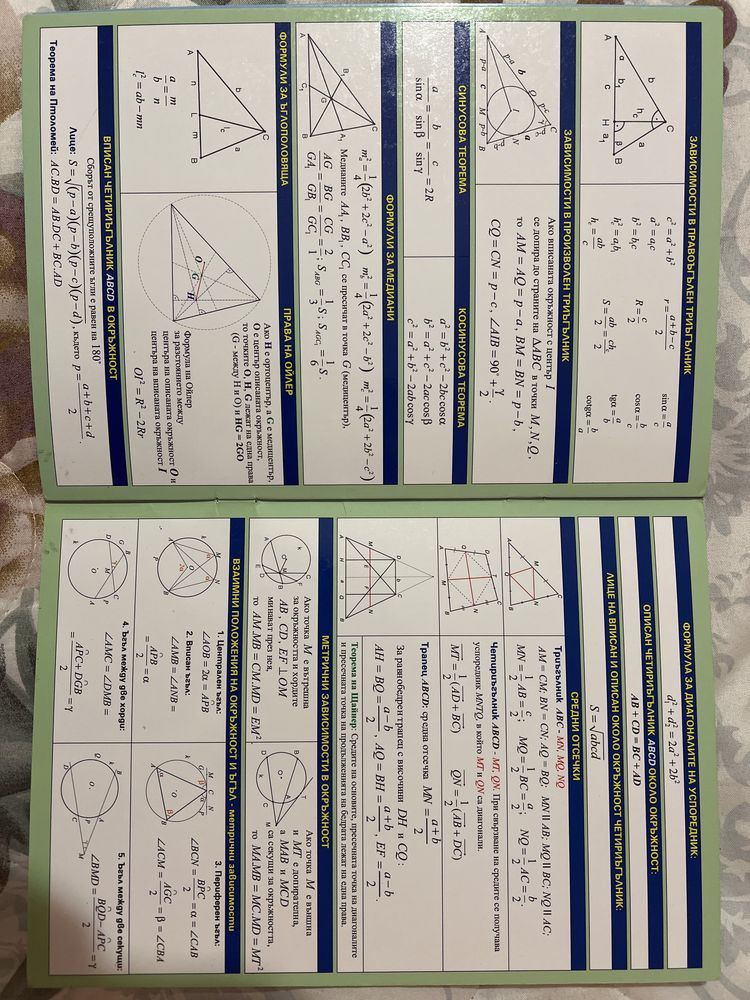 ЗАВИСИМОСТИ В ПРАВОЪГЪЛЕН ТРИЪГЪЛНИК
c² = a² + b²
a² = a₁c
b² = b₁c
h_c² = a₁b₁
h_c = ab/c
r = (a + b − c)/2
R = c/2
S = ab/2 = ch_c/2
sin α = a/c
cos α = b/c
tg α = a/b
cotg α = b/a
ЗАВИСИМОСТИ В ПРОИЗВОЛЕН ТРИЪГЪЛНИК
Ако вписаната окръжност с център I
се допира до страните на ΔABC в точки M, N, Q,
то AM = AQ = p − a, BM = BN = p − b,
CQ = CN = p − c, ∠AIB = 90° + γ/2
СИНУСОВА ТЕОРЕМА
a/sin α = b/sin β = c/sin γ = 2R
КОСИНУСОВА ТЕОРЕМА
a² = b² + c² − 2bc cos α
b² = a² + c² − 2ac cos β
c² = a² + b² − 2ab cos γ
ФОРМУЛИ ЗА МЕДИАНИ
m_a² = 1/4(2b² + 2c² − a²) m_b² = 1/4(2a² + 2c² − b²) m_c² = 1/4(2a² + 2b² − c²)
Медианите AA₁, BB₁, CC₁ се пресичат в точка G (медицентър),
AG/GA₁ = BG/GB₁ = CG/GC₁ = 2/1; S_ABG = 1/3 S; S_AGC₁ = 1/6 S.
ФОРМУЛИ ЗА ЪГЛОПОЛОВЯЩА
a/b = m/n
l_c² = ab − mn
ПРАВА НА ОЙЛЕР
Ако H е ортоцентър, а G е медицентър,
O е център описаната окръжност,
то точките O, H, G лежат на една права
(G - между H и O) и HG = 2GO
Формула на Ойлер
за разстоянието между
центъра на описаната окръжност O и
центъра на вписаната окръжност I
OI² = R² − 2Rr
ВПИСАН ЧЕТИРИЪГЪЛНИК ABCD В ОКРЪЖНОСТ
Сборът от срещуположните ъгли е равен на 180°
Лице: S = √((p − a)(p − b)(p − c)(p − d)), където p = (a + b + c + d)/2
Теорема на Птполомей: AC.BD = AB.DC + BC.AD
ФОРМУЛА ЗА ДИАГОНАЛИТЕ НА УСПОРЕДНИК:
d₁² + d₂² = 2a² + 2b²
ОПИСАН ЧЕТИРИЪГЪЛНИК ABCD ОКОЛО ОКРЪЖНОСТ:
AB + CD = BC + AD
ЛИЦЕ НА ВПИСАН И ОПИСАН ОКОЛО ОКРЪЖНОСТ ЧЕТИРИЪГЪЛНИК:
S = √abcd
СРЕДНИ ОТСЕЧКИ
Триъгълник ABC - MN, MQ, NQ
AM = CM; BN = CN; AQ = BQ; MN || AB; MQ || BC; NQ || AC;
MN = 1/2 AB = c/2; MQ = 1/2 BC = a/2; NQ = 1/2 AC = b/2.
Четириъгълник ABCD - MT, QN. При свързване на средите се получава
успоредник MNTQ, в който MT и QN са диагонали.
MT = 1/2(AD + BC) QN = 1/2(AB + DC)
Трапец ABCD: средна отсечка MN = (a + b)/2
За равнобедрен трапец с височини DH и CQ:
AH = BQ = (a − b)/2, AQ = BH = (a + b)/2, EF = (a − b)/2
Теорема на Щайнер: Средите на основите, пресечната точка на диагоналите
и пресечната точка на продълженията на бедрата лежат на една права.
МЕТРИЧНИ ЗАВИСИМОСТИ В ОКРЪЖНОСТ
Ако точка M е вътрешна
за окръжността и хордите
AB, CD, EF ⊥ OM
минават през нея,
то AM.MB = CM.MD = EM²
Ако точка M е външна
и MT е допирателна,
а MAB и MCD
са секущи за окръжността,
то MA.MB = MC.MD = MT²
ВЗАИМНИ ПОЛОЖЕНИЯ НА ОКРЪЖНОСТ И ЪГЪЛ - метрични зависимости
1. Централен ъгъл:
∠AOB = 2α = APB
2. Вписан ъгъл:
∠AMB = ∠ANB =
= APB/2 = α
3. Периферен ъгъл:
∠BCN = BPC/2 = α = ∠CAB
∠ACM = AGC/2 = β = ∠CBA
4. Ъгъл между две хорди:
∠AMC = ∠DMB =
= (APC + DGB)/2 = γ
5. Ъгъл между две секущи:
∠BMD = (BQD − APC)/2 = γ